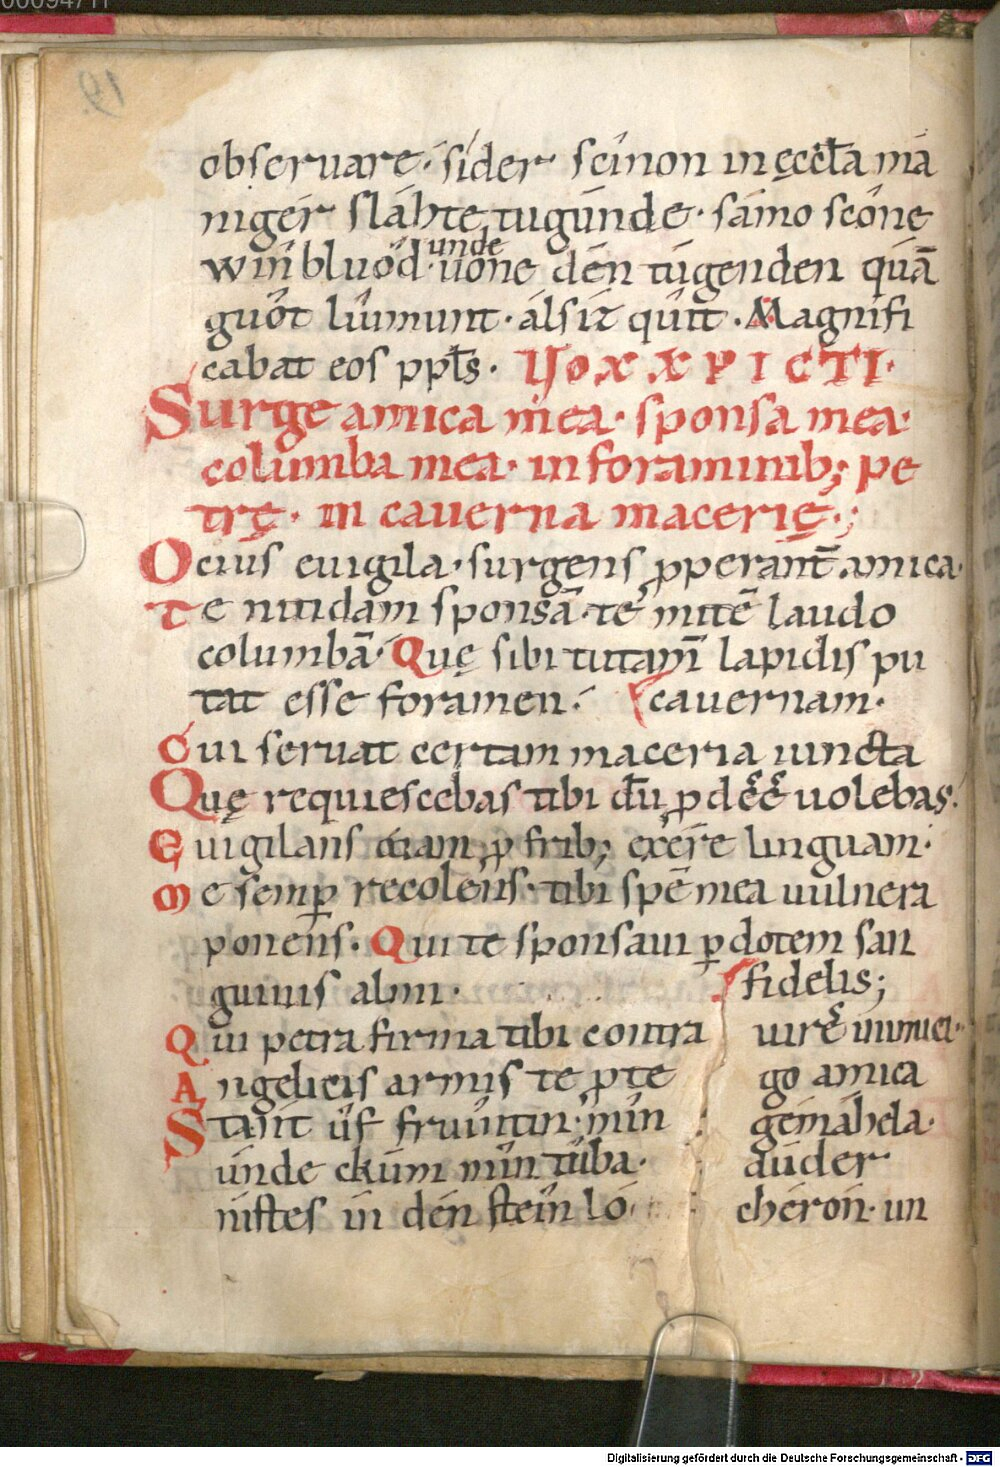 observare. síder scínon in ęccl̄a má
niger sláhte tugúnde. sámo scóne
wînbluôd. unde uóne dén túgenden quā
guôt lúmunt. álsiz quît. Magnifi
cabat eos ppl̄s. VOX XPICTI.
Surge amica mea. sponsa mea.
columba mea. in foraminib; pe
trę. in cauerna macerię.;
Ocius euigila. surgens pperant̄ amica.
Te nitidam sponsā. te mitē laudo
columbā. Quę sibi tutam̄ lapidis pu
tat esse foramen. cauernam.
Qui seruat certam maceria iuncta
Quę requiescebas tibi dū p dēē uolebas.
Euigilans etiam p frib; exére linguam.
Me semp recolens. tibi spē mea uulnera
ponens. Qui te sponsaui p dotem san
guinis almi. fidelis;
Qui petra firma tibi contra uirę inimici.
Angelicis armis te pte go amica
Stant ûf fruíntin. mín gemáhela.
únde chúm mín túba. dúder
nistes in dén stein ló cheron. un
Digitalisierung gefördert durch die Deutsche Forschungsgemeinschaft - DFG